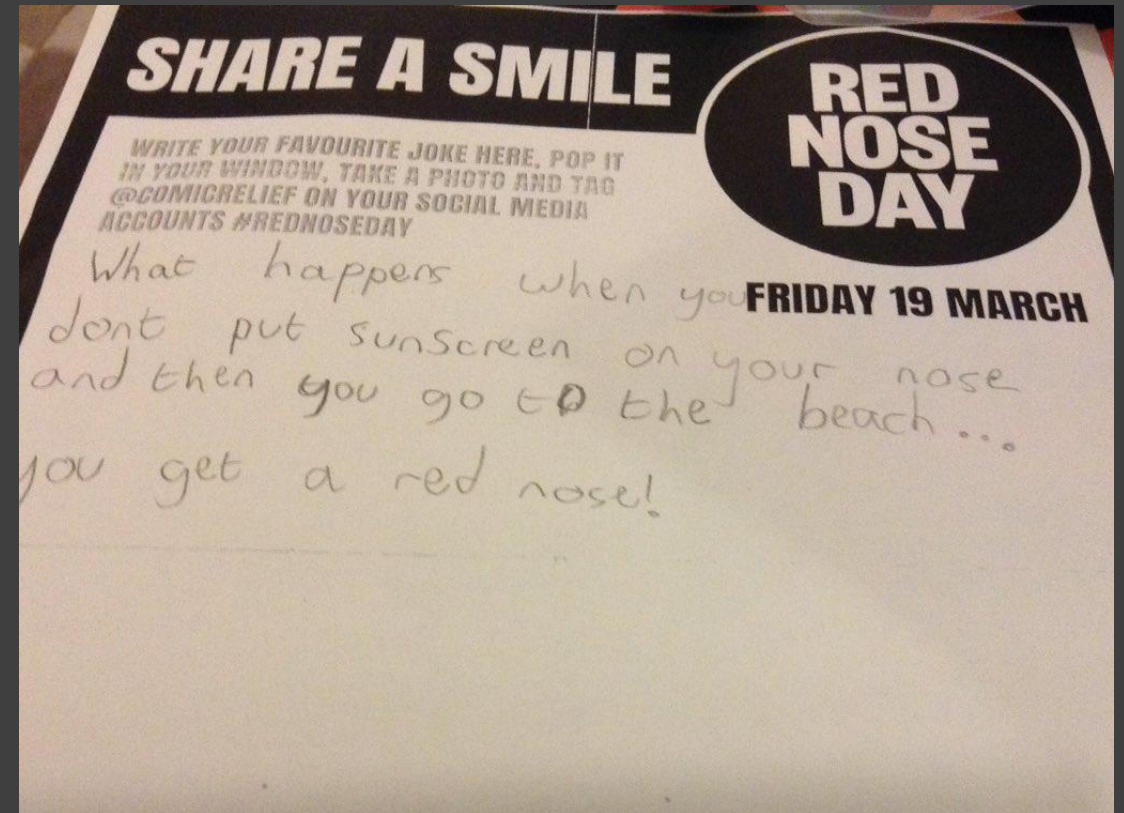 SHARE A SMILE
RED
NOSE
DAY
WRITE YOUR FAVOURITE JOKE HERE, POP IT
IN YOUR WINDOW, TAKE A PHOTO AND TAG
@COMICRELIEF ON YOUR SOCIAL MEDIA
ACCOUNTS #REDNOSEDAY
FRIDAY 19 MARCH
What happens when you
dont put sunscreen on your nose
and then you go to the beach...
you get a red nose!